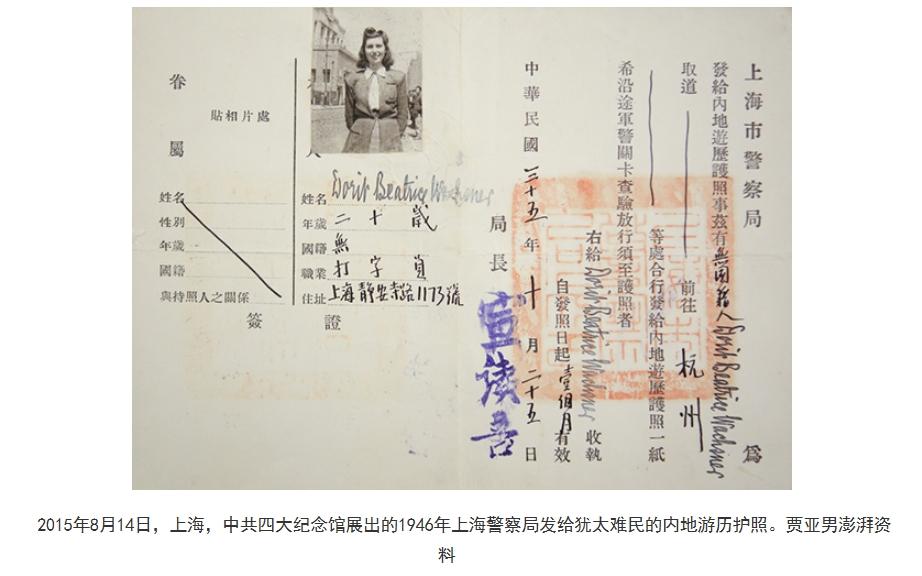 上海市警察局為
發給內地遊歷護照事茲有無國籍人Dorit Beatrice Wachsner
取道 前往 杭州
等處合行發給內地遊歷護照一紙
希沿途軍警關卡查驗放行須至護照者
右給 Dorit Beatrice Wachsner 收執
自發照日起壹個月有效
中華民國三十五年十月二十五日
局長 宣鐵吾
人
姓名 Dorit Beatrice Wachsner
年歲 二十歲
國籍 無
職業 打字員
住址 上海靜安寺路1173號
眷屬
貼相片處
姓名
性別
年歲
國籍
與持照人之關係
簽證
2015年8月14日，上海，中共四大纪念馆展出的1946年上海警察局发给犹太难民的内地游历护照。贾亚男澎湃资
料